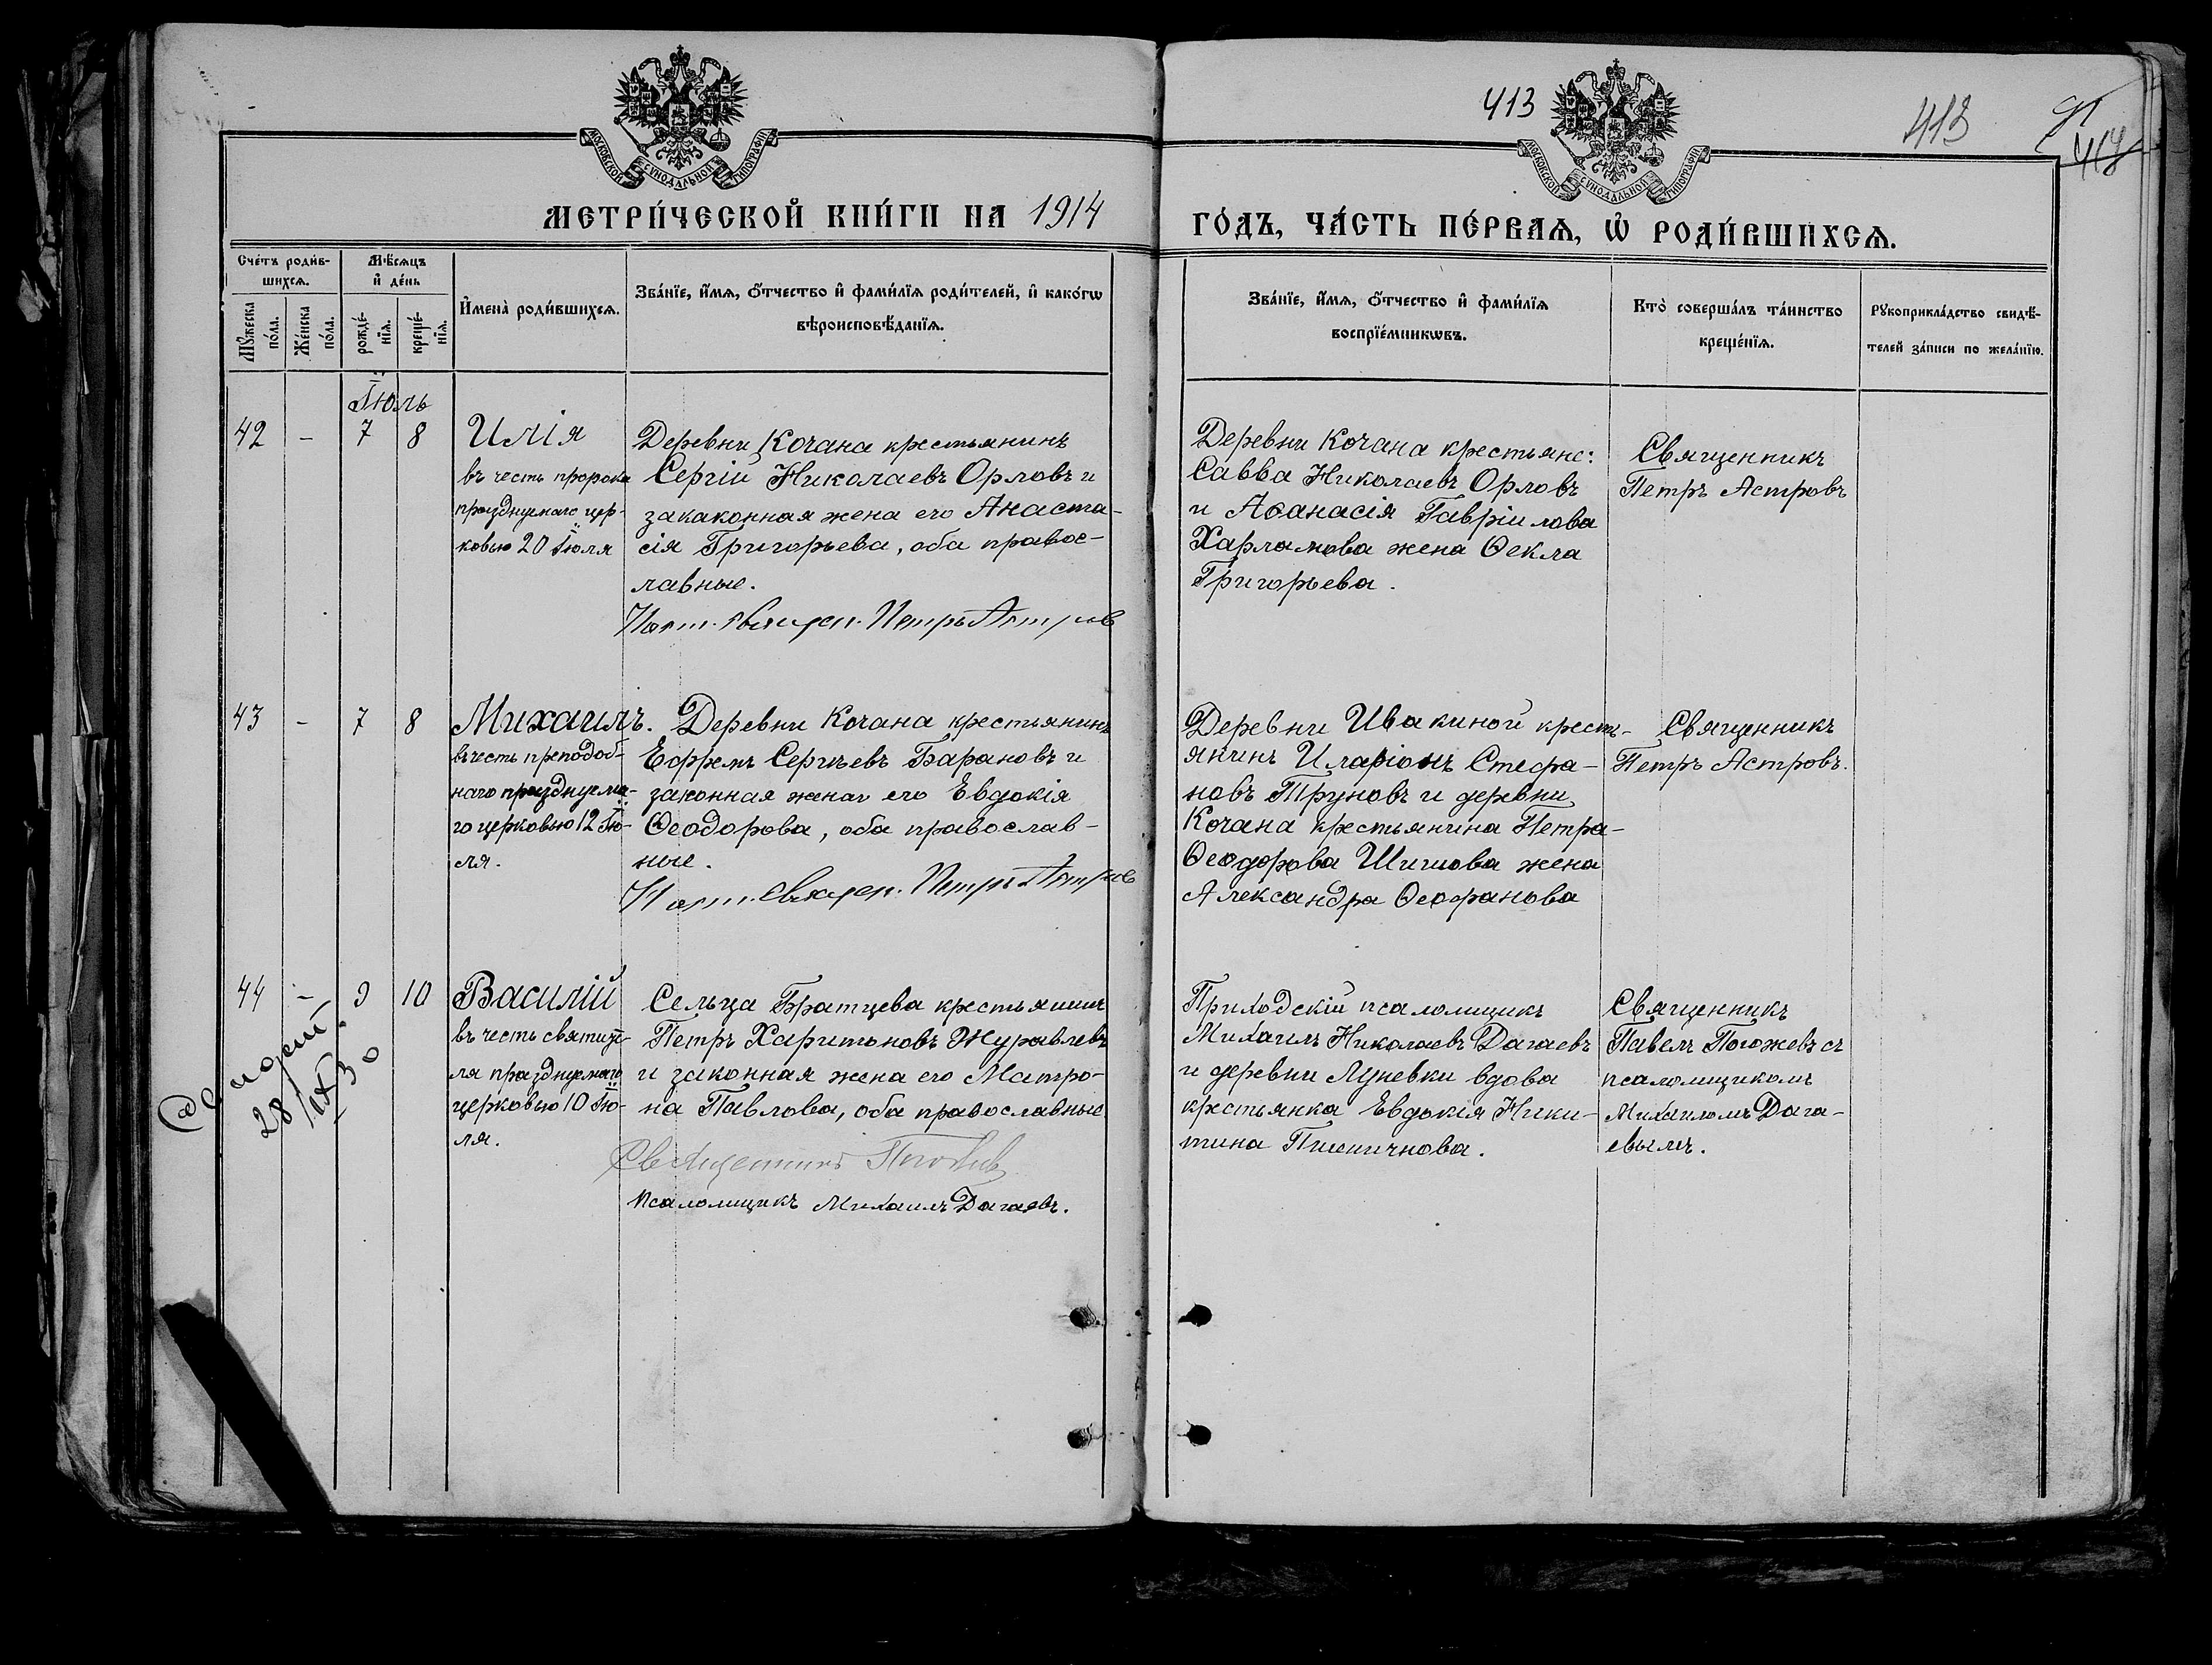 413
413
МОСКОВСКОЙ СѴНОДАЛЬНОЙ ТИПОГРАФІИ
МОСКОВСКОЙ СѴНОДАЛЬНОЙ ТИПОГРАФІИ
МЕТРИ́ЧЕСКОЙ КНИ́ГИ НА 1914
ГО́ДЪ, ЧА́СТЬ ПЕ́РВАѦ, Ѡ҆ РОДИ́ВШИХСѦ.
Сче́тъ роди́в-
шихсѧ.
Мꙋ́жеска по́ла.
Же́нска по́ла.
Мѣ́сѧцъ
и҆ де́нь
рожде́-
нїѧ.
креще́-
нїѧ.
И҆мена̀ роди́вшихсѧ.
Зва́нїе, и҆́мѧ, ѻ҆́тчество и҆ фами́лїѧ роди́телей, и҆ како́гѡ
вѣроисповѣ́данїѧ.
Зва́нїе, и҆́мѧ, ѻ҆́тчество и҆ фами́лїѧ
воспрїе́мникѡвъ.
Кто̀ соверша́лъ та́инство
креще́нїѧ.
Рꙋкоприкла́дство свидѣ́-
телей за́писи по жела́нїю.
Іюль
42 - 7 8
Илія
въ честь пророка
празднуемаго цер-
ковью 20 Іюля
Деревни Кочана крестьянинъ
Сергій Николаевъ Орловъ и
закаконная жена его Анаста-
сія Григорьева, оба правос-
лавные.
Наст. священ. Петръ Астров
Деревни Кочана крестьянс:
Савва Николаевъ Орловъ
и Аѳанасія Гавріилова
Харламова жена Ѳекла
Григорьева.
Священникъ
Петръ Астровъ
43 - 7 8
Михаилъ.
въ честь преподоб-
наго празднуема-
го церковью 12 Ію-
ля.
Деревни Кочана крестьянинъ
Ефремъ Сергѣевъ Барановъ и
законная жена его Евдокія
Ѳеодорова, оба православ-
ные.
Наст. священ. Петръ Астров
Деревни Ивакиной кресть-
янинъ Иларіонъ Стефа-
новъ Труновъ и деревни
Кочана крестьянина Петра
Ѳеодорова Шишова жена
Александра Ѳеофанова
Священникъ
Петръ Астровъ.
44 - 9 10
Василій
въ честь святите-
ля празднуемаго
церковью 10 Ію-
ля.
Сельца Братцева крестьянинъ
Петръ Харитоновъ Журавлевъ
и законная жена его Матро-
на Павлова, оба православные
Священникъ Погожев
Псаломщикъ Михаилъ Дагаевъ.
Приходскій псаломщикъ
Михаилъ Николаевъ Дагаевъ
и деревни Луневки вдова
крестьянка Евдокія Ники-
тина Пшеничнова.
Священникъ
Павелъ Погожевъ съ
псаломщикомъ
Михаиломъ Дага-
евымъ.
28/IX 30